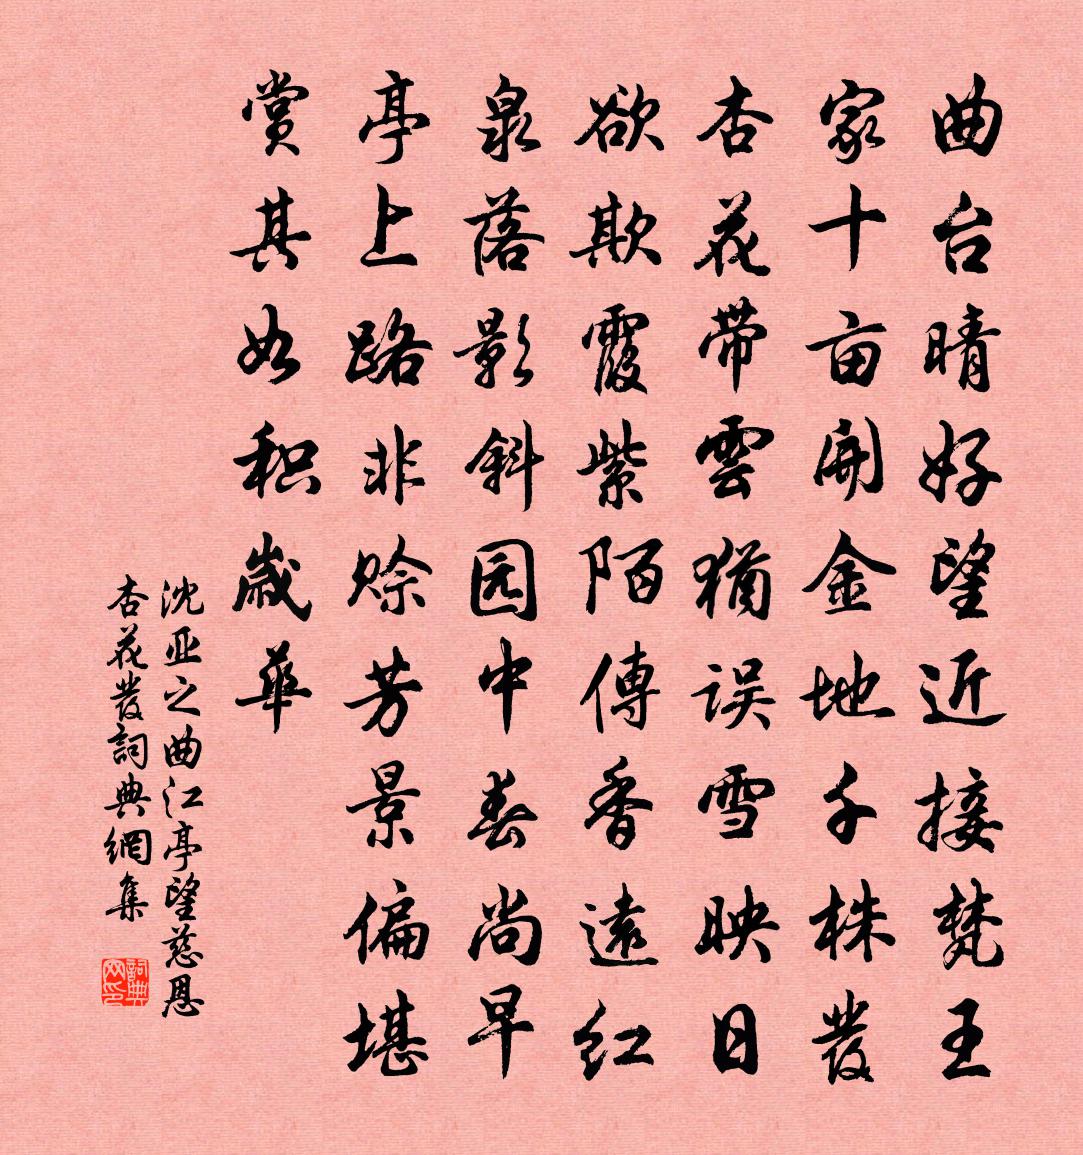 曲台晴好望近接梵王
家十亩開金地千株發
杏花带雲猶误雪映日
欲欺霞紫陌傳香遠红
泉落影斜园中春尚早
亭上路非赊芳景偏堪
赏其如积歲華
沈亚之曲江亭望慈恩
杏花發詞典網集
詞典网印